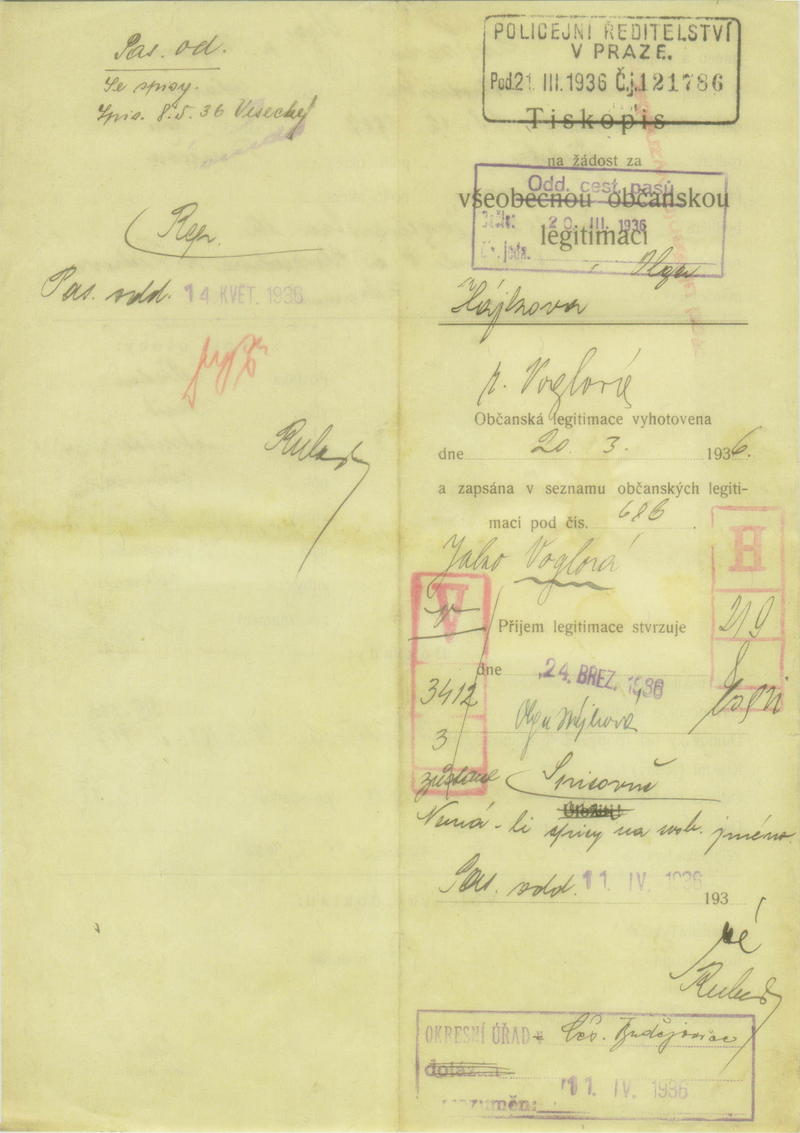 Pas. od.
Se spisy.
Spis. 8.5.36 Vesecky
Rep.
Pas. odd. 14 KVĚT. 1936
POLICEJNÍ ŘEDITELSTVÍ
V PRAZE.
Pod. 21 III. 1936 Č.j. 121786
Tiskopis
na žádost za
Odd. cest. pasů
všeobecnou občanskou
Došlo: 20. III. 1936
legitimaci
Olga
Hájkova
r. Voglová
Občanská legitimace vyhotovena
dne 20 3. 1936.
a zapsána v seznamu občanských legiti-
maci pod čís. 686 .
Jako Voglová
H
V
V
219
Příjem legitimace stvrzuje
dne 24. BŘEZ. 1936
3412
Olga Hájková
3
zůstane
Spisovně
Uložiti!
Nemá-li spisy na
jméno.
Pas. odd. 11 IV. 1936
193
OKRESNÍ ÚŘAD Čes. Budějovice
11. IV. 1936